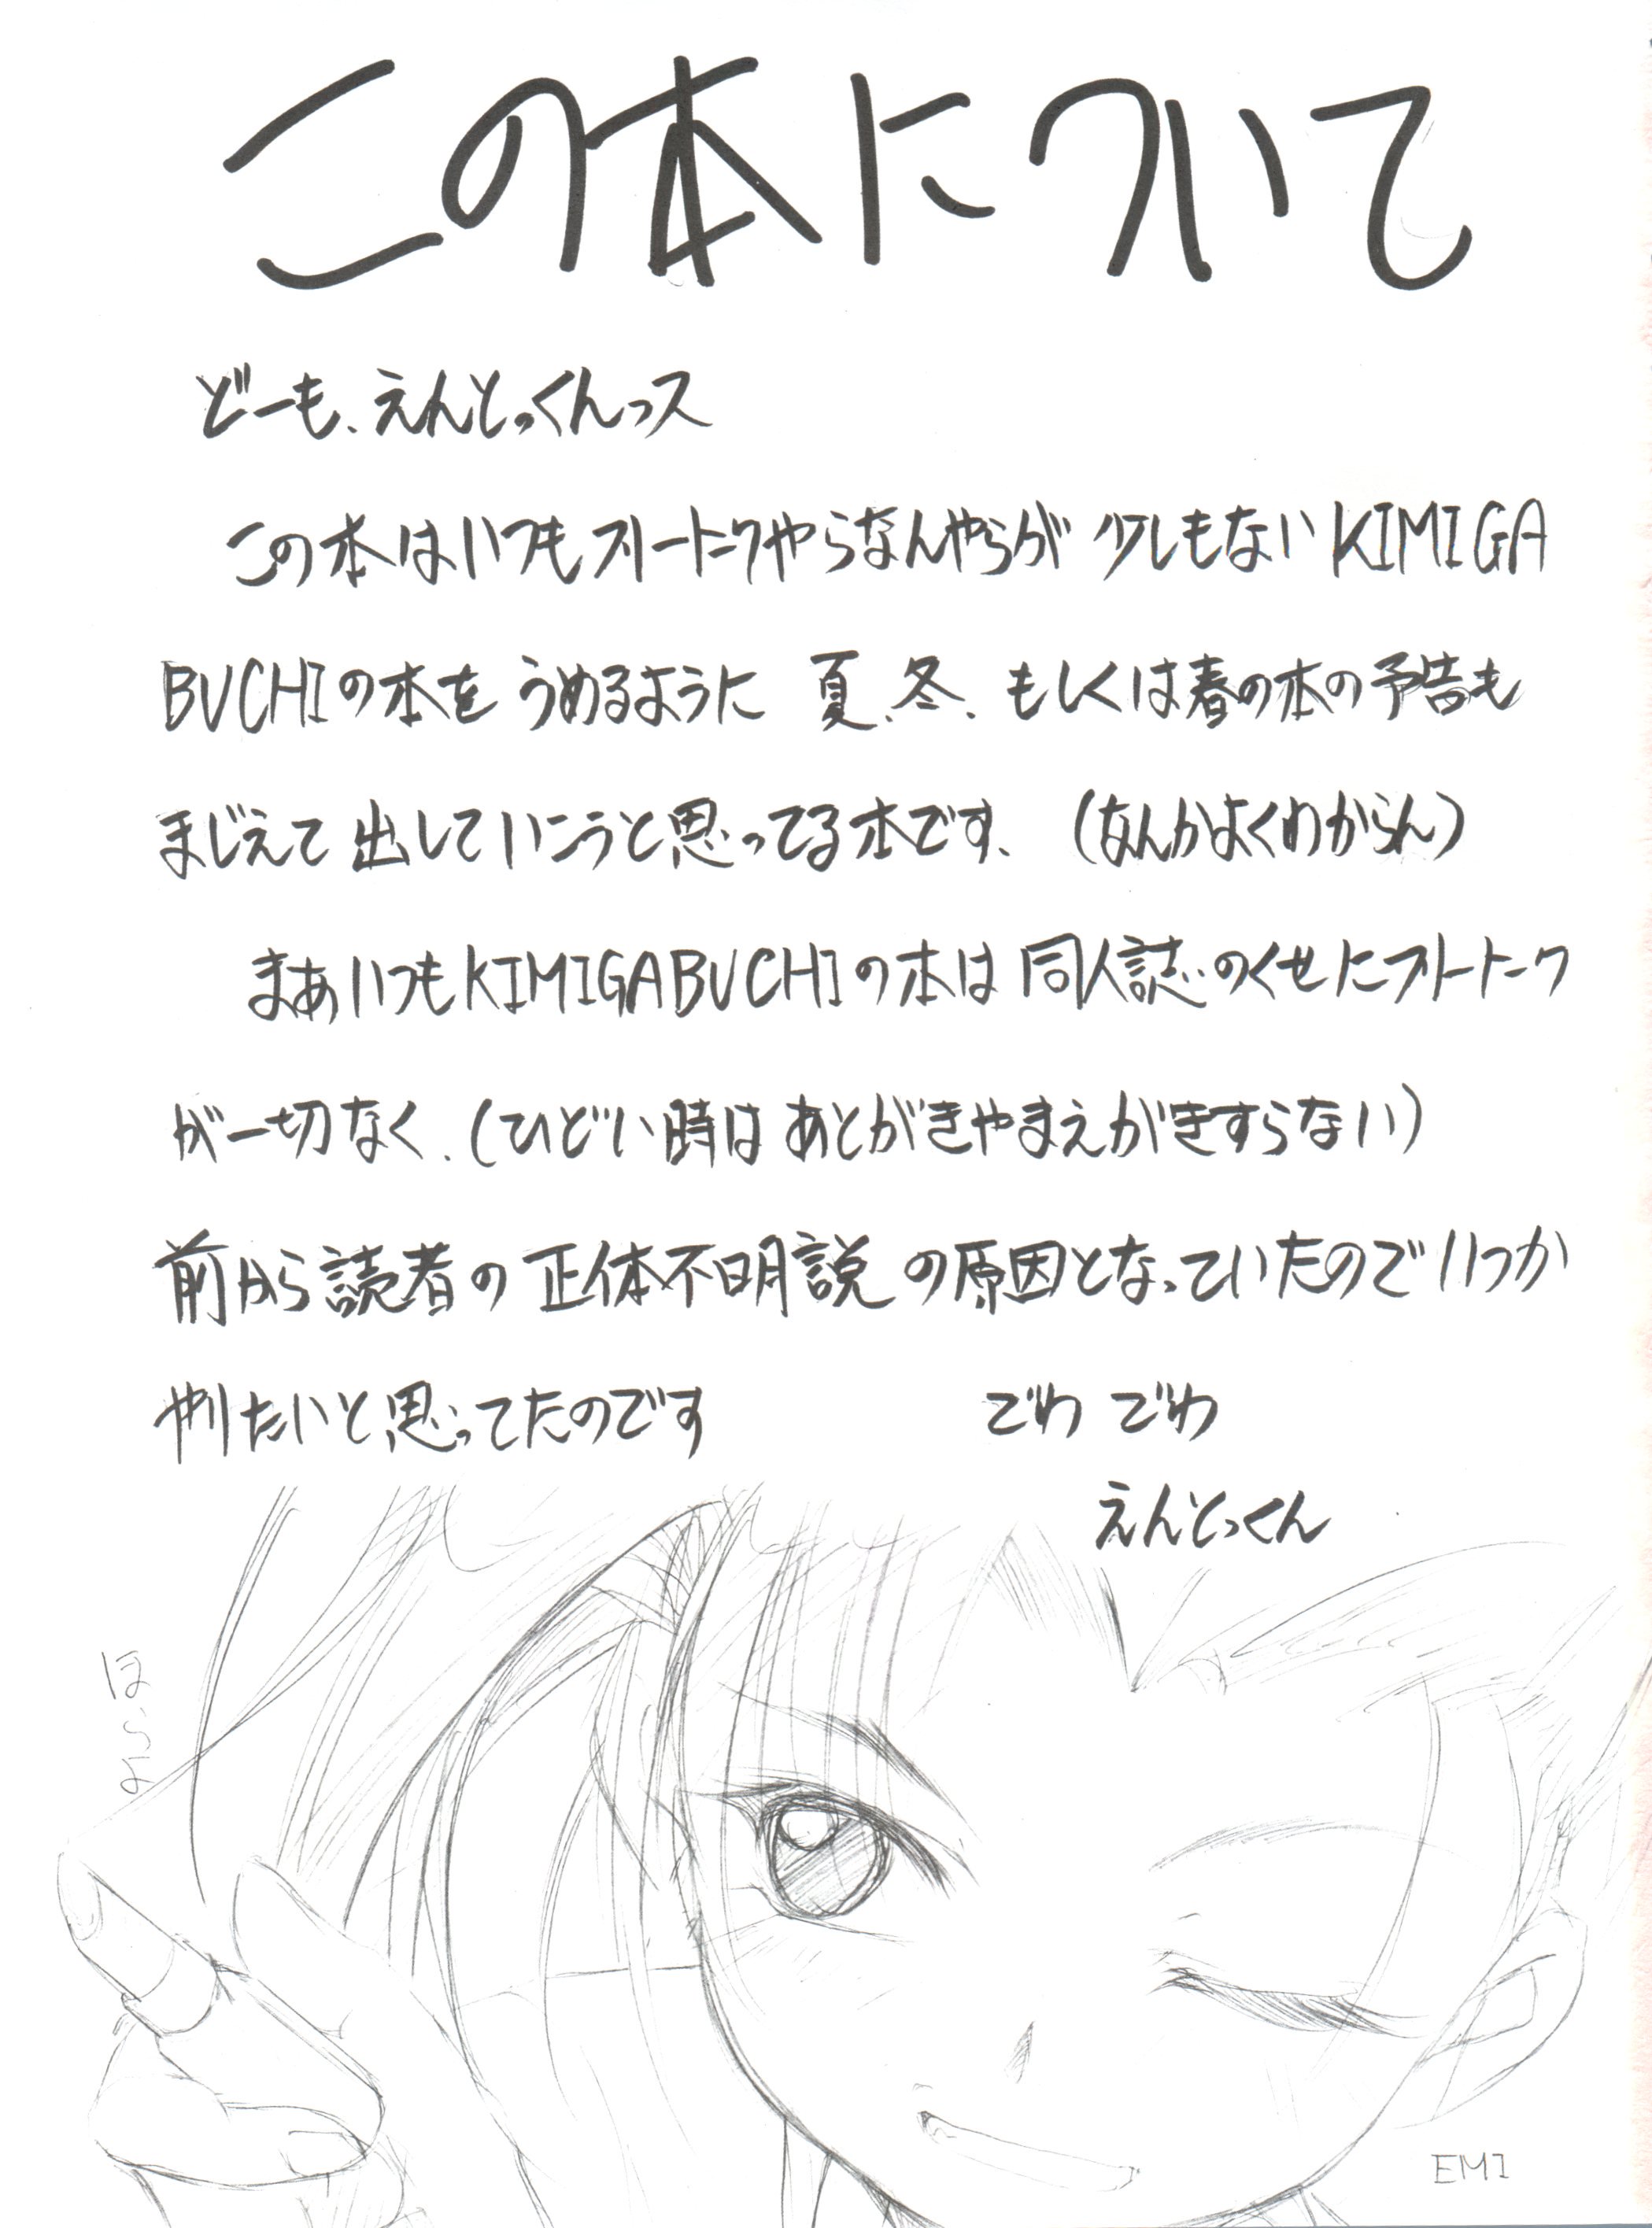 この本について
どーも、えんとっくんっス
この本はいつもフリートークやらなんやらが少しもないKIMIGA
BUCHIの本をうめるように 夏、冬、もしくは春の本の予告も
まじえて出していこうと思ってる本です、 (なんかよくわからん)
まあいつもKIMIGABUCHIの本は同人誌のくせにフリートーク
が一切なく、(ひどい時はあとがきやまえがきすらない)
前から読者の正体不明説の原因となっていたのでいつか
やりたいと思ってたのです でわ でわ
えんとっくん
ほらよ
EMI